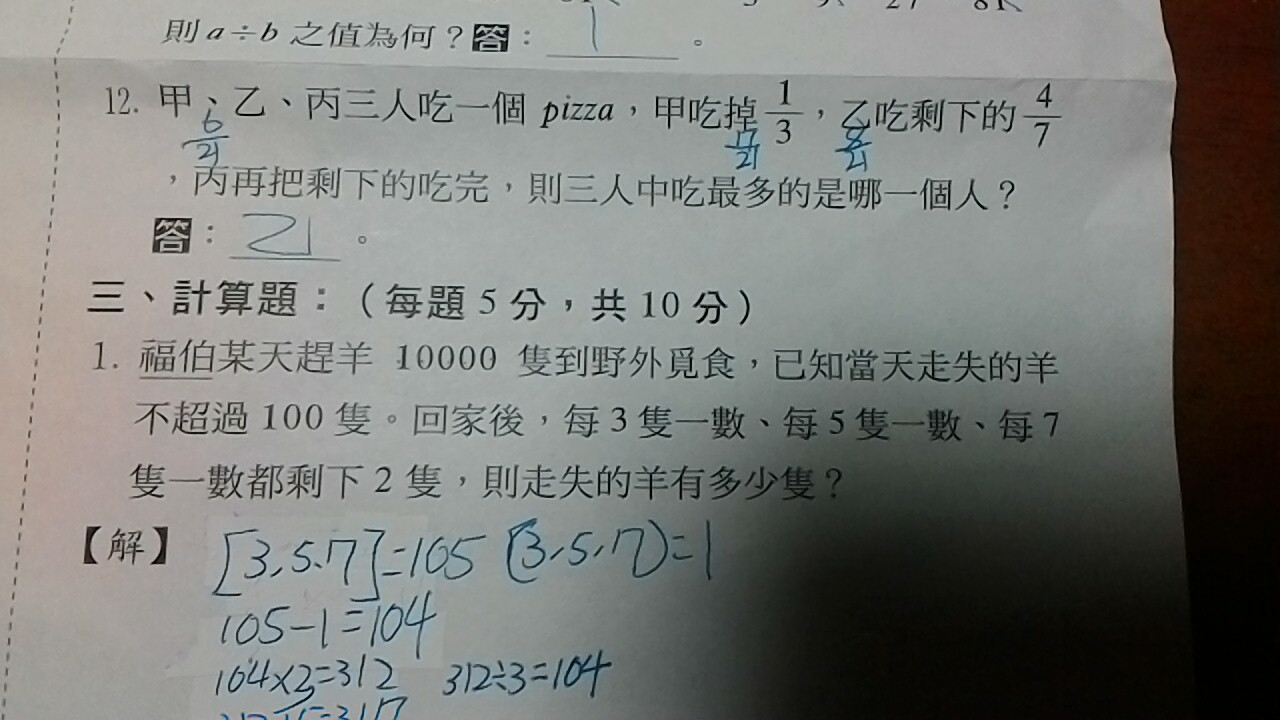 則 a÷b 之值為何？答：1。
12. 甲、乙、丙三人吃一個 pizza，甲吃掉 1/3，乙吃剩下的 4/7
6/21 8/21
，丙再把剩下的吃完，則三人中吃最多的是哪一個人？
答：乙。
三、計算題：（每題 5 分，共 10 分）
1. 福伯某天趕羊 10000 隻到野外覓食，已知當天走失的羊
不超過 100 隻。回家後，每 3 隻一數、每 5 隻一數、每 7
隻一數都剩下 2 隻，則走失的羊有多少隻？
【解】 [3,5.7]=105 (3.5.7)=1
105-1=104
312÷3=104